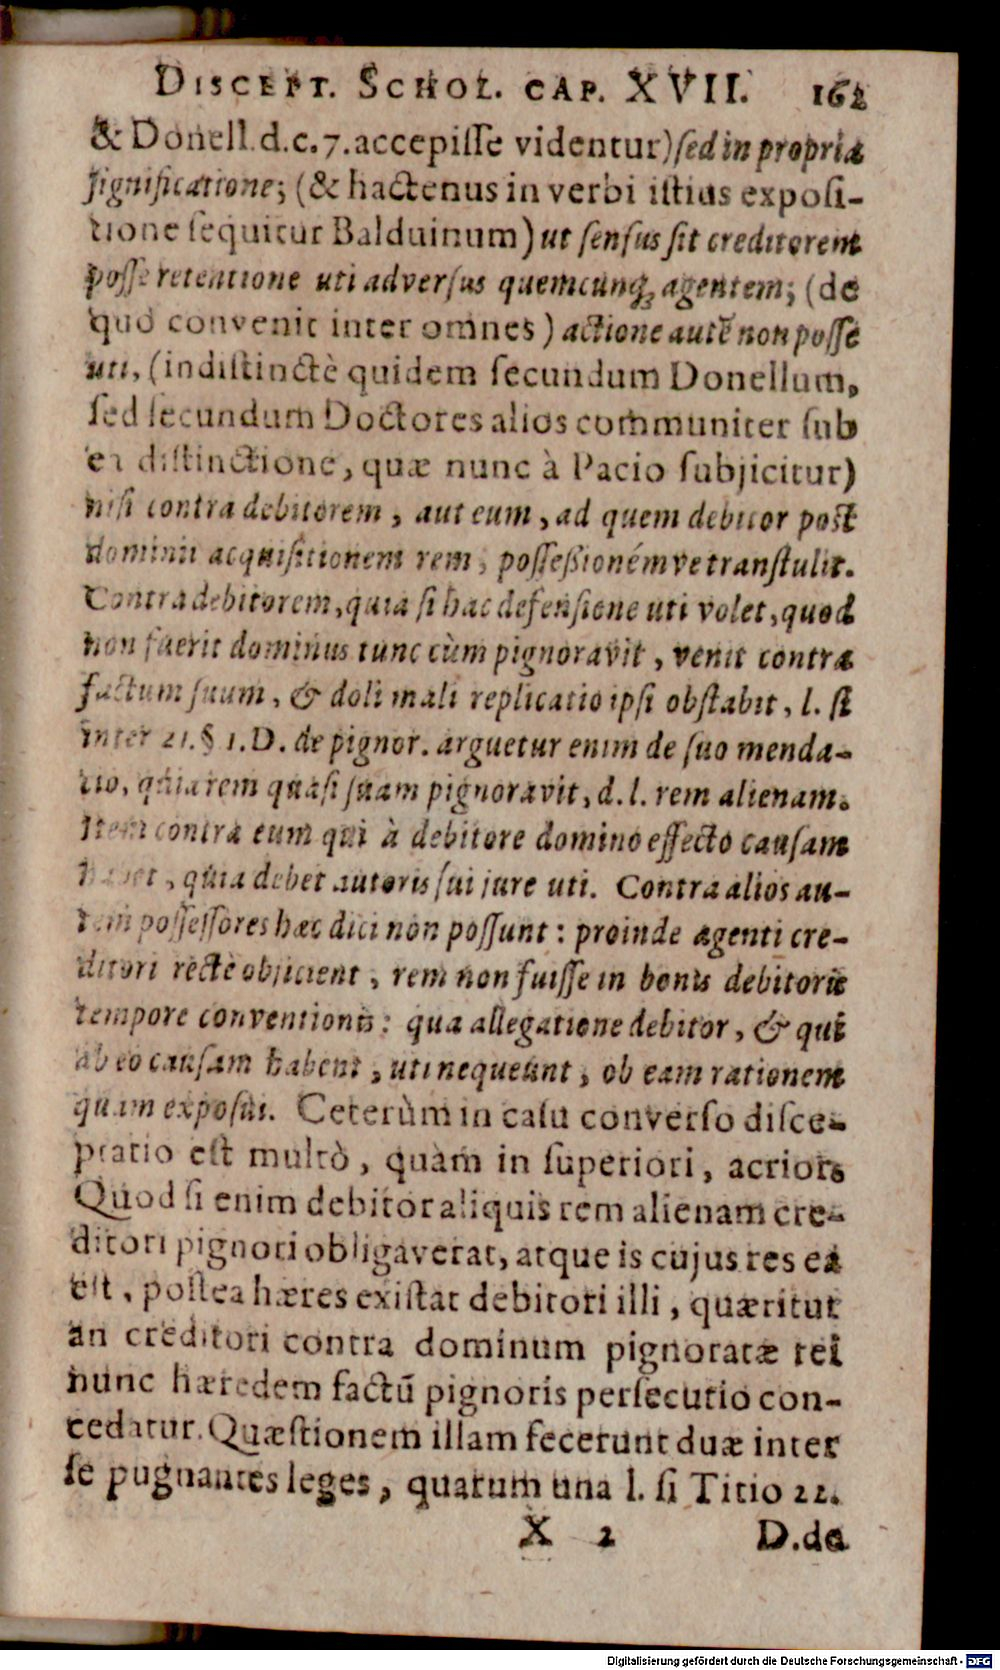 DISCEPT. SCHOL. CAP. XVII. 162
& Donell. d.c. 7. accepisse videntur) sed in propria
significatione; (& hactenus in verbi istius exposi-
tione sequitur Balduinum) ut sensus sit creditorem
posse retentione uti adversus quemcunq; agentem; (de
quo convenit inter omnes) actione autẽ non posse
uti, (indistinctè quidem secundum Donellum,
sed secundum Doctores alios communiter sub
ea distinctione, quæ nunc à Pacio subjicitur)
nisi contra debitorem, aut eum, ad quem debitor post
dominii acquisitionem rem, possessionémve transtulit.
Contra debitorem, quia si hac defensione uti volet, quod
non fuerit dominus tunc cùm pignoravit, venit contra
factum suum, & doli mali replicatio ipsi obstabit, l. si
inter 21. § 1. D. de pignor. arguetur enim de suo menda-
tio, quia rem quasi suam pignoravit, d. l. rem alienam.
Item contra eum qui à debitore domino effecto causam
habet, quia debet autoris sui jure uti. Contra alios au-
tem possessores hæc dici non possunt: proinde agenti cre-
ditori rectè objicient, rem non fuisse in bonis debitoris
tempore conventionis: qua allegatione debitor, & qui
ab eo causam habent, uti nequeunt, ob eam rationem
quam exposui. Ceterùm in casu converso disce-
ptatio est multò, quàm in superiori, acrior.
Quod si enim debitor aliquis rem alienam cre-
ditori pignori obligaverat, atque is cujus res ea
est, postea hæres existat debitori illi, quæritur
an creditori contra dominum pignoratæ rei
nunc hæredem factũ pignoris persecutio con-
cedatur. Quæstionem illam fecerunt duæ inter
se pugnantes leges, quarum una l. si Titio 22.
X 2 D. de
Digitalisierung gefördert durch die Deutsche Forschungsgemeinschaft - DFG